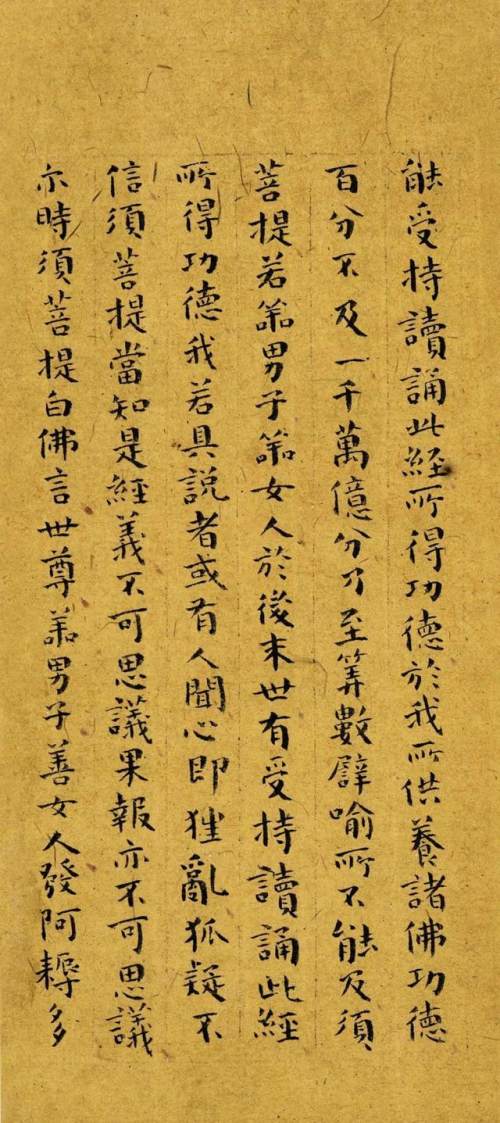 能受持讀誦此經所得功德於我所供養諸佛功德
百分不及一千萬億分乃至筭數譬喻所不能及須
菩提若善男子善女人於後末世有受持讀誦此經
所得功德我若具說者或有人聞心即狂亂狐疑不
信須菩提當知是經義不可思議果報亦不可思議
尒時須菩提白佛言世尊善男子善女人發阿耨多